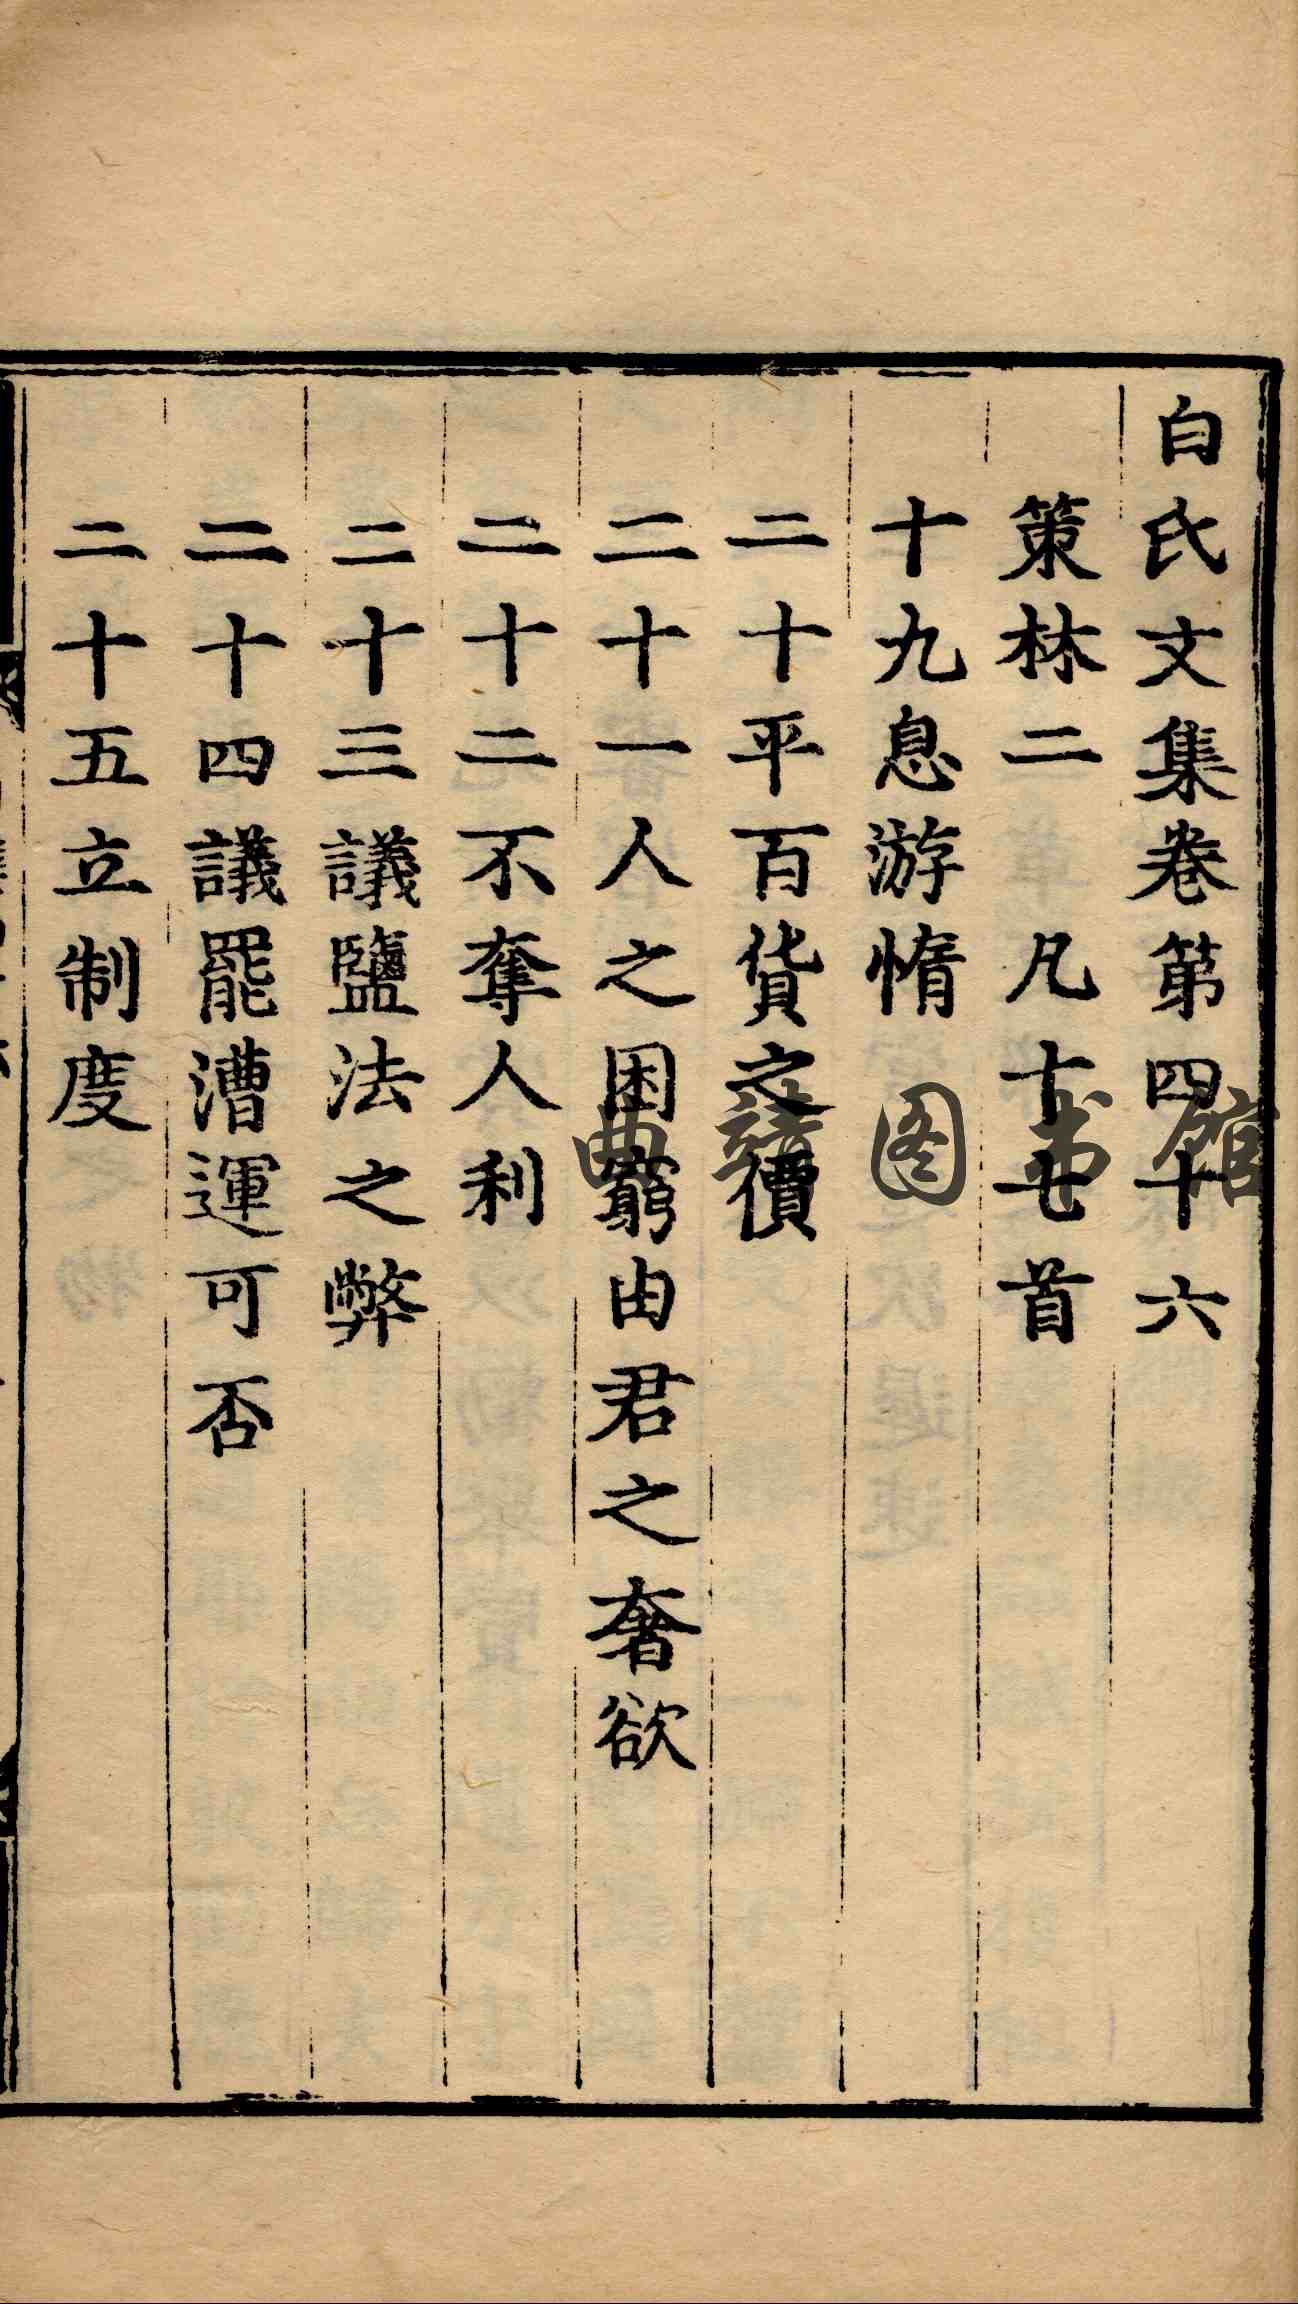 白氏文集卷第四十六
策林二 凡十七首
十九息游惰
二十平百貨之價
二十一人之困窮由君之奢欲
二十二不奪人利
二十三議鹽法之弊
二十四議罷漕運可否
二十五立制度
图书馆